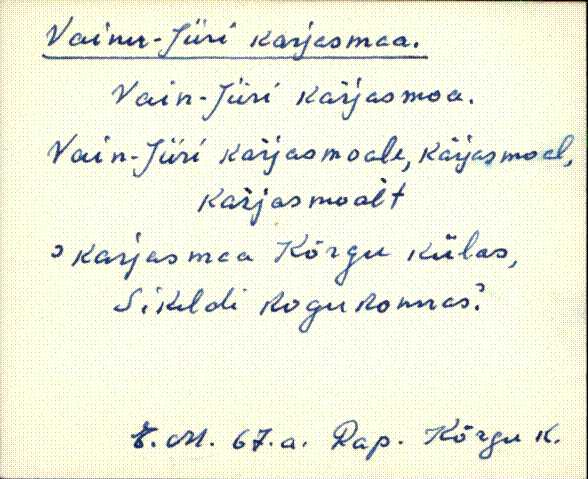 Vainu-Jüri karjasmaa.
Vain-Jüri kaŕjasmoa.
Vain-Jüri kaŕjasmoale, kaŕjasmoal,
kaŕjasmoalt
> karjasmaa Kõrgu külas,
Sikeldi kogukonnas?
E. M. 67. a. Rap. Kõrgu k.